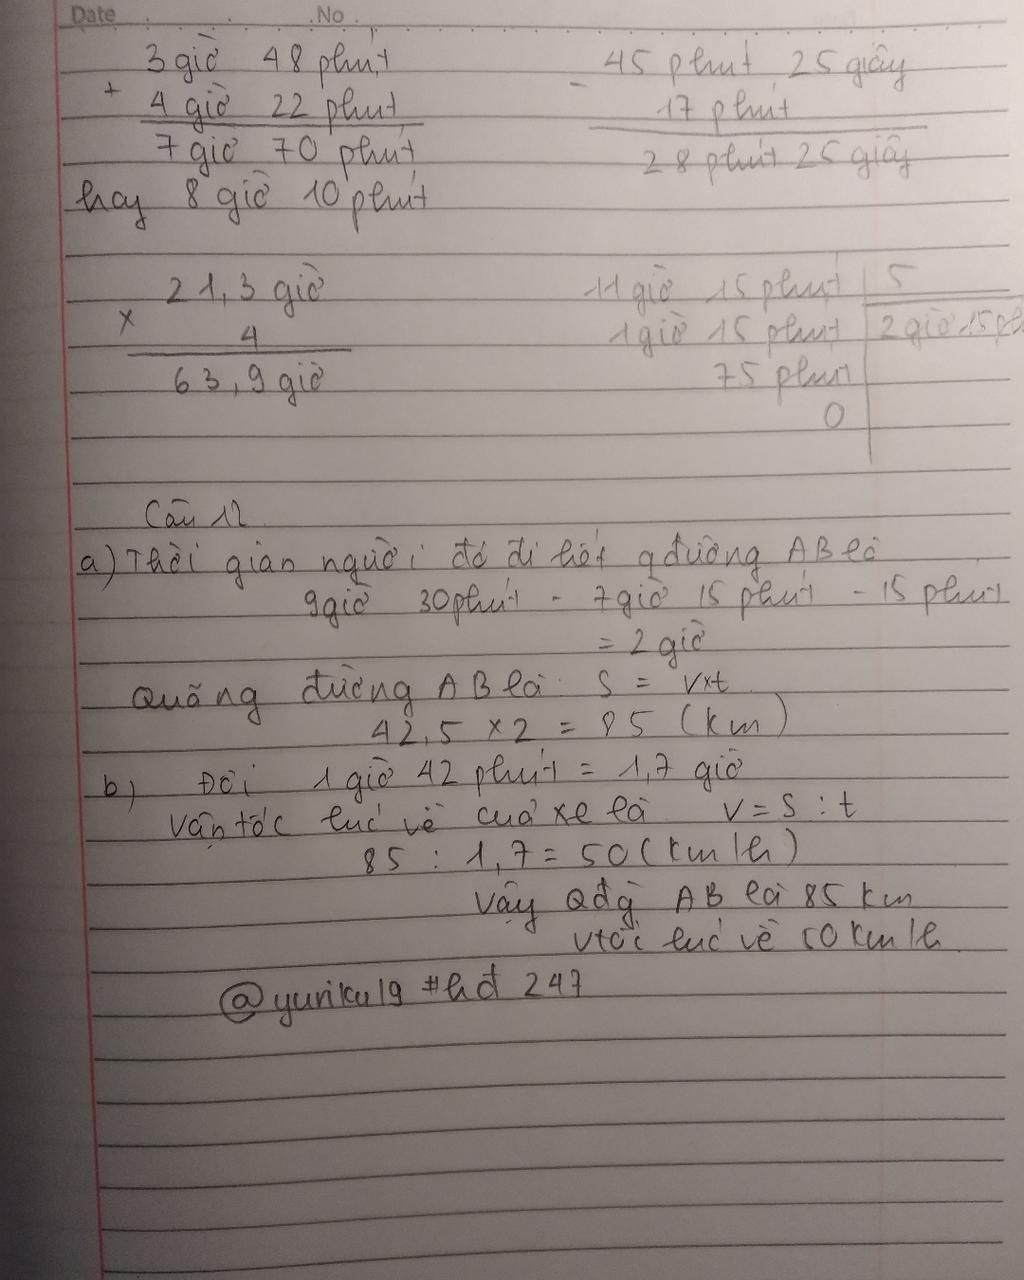 Date No
3 giờ 48 phút
+
4 giờ 22 phút
7 giờ 70 phút
hay 8 giờ 10 phút
45 phút 25 giây
-
17 phút
28 phút 25 giây
21,3 giờ
x
4
63,9 giờ
11 giờ 15 phút 5
1 giờ 15 phút 2 giờ 15 ph
75 phút
0
Câu 12
a) Thời gian người đó đi hết qđường AB là
9giờ 30phút - 7giờ 15 phút - 15 phút
= 2 giờ
Quãng đường AB là S = vxt
42,5 x 2 = 85 (km)
b) Đổi 1 giờ 42 phút = 1,7 giờ
Vận tốc lúc về của xe là V = S : t
85 : 1,7 = 50 (km/h)
Vậy Qđg AB là 85 km
vtốc lúc về 50 km/h
@yuriku19 #hđ 247